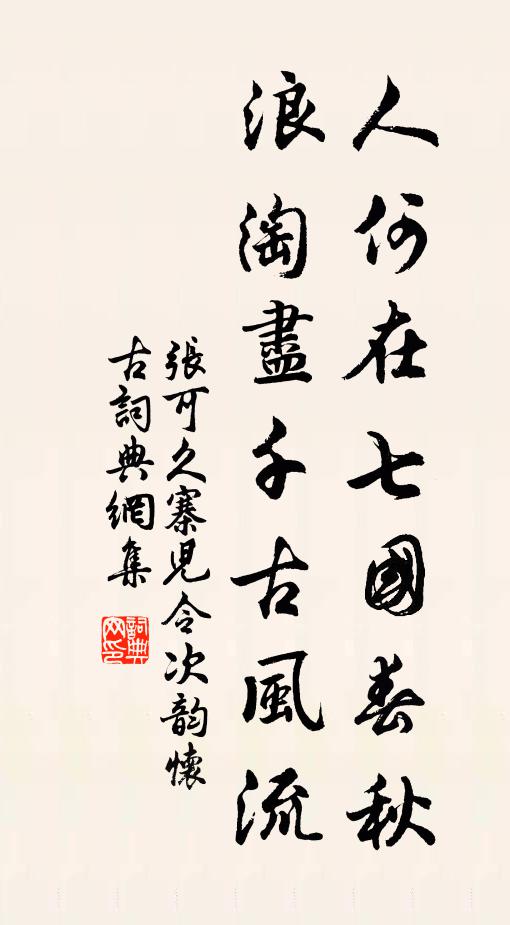 人何在七國春秋
浪淘盡千古風流
張可久寨兒令次韵懷
古詞典網集
詞典网印